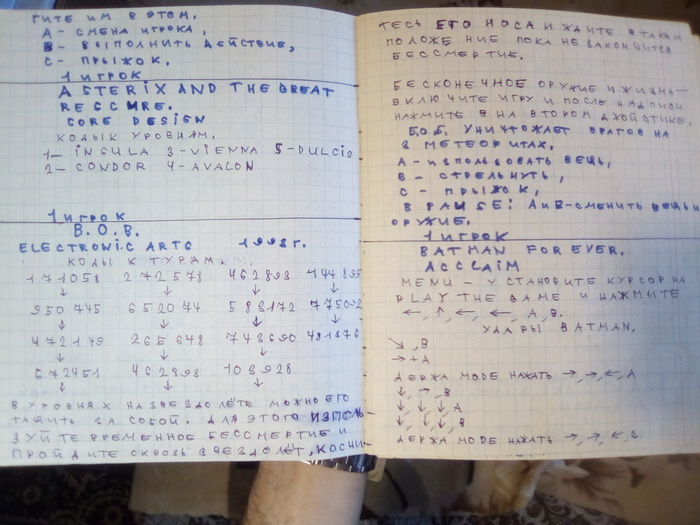 ГИТЕ ИМ В ЭТОМ.
А - СМЕНА ИГРОКА,
В - ВЫПОЛНИТЬ ДЕЙСТВИЕ,
С - ПРЫЖОК.
1 ИГРОК
ASTERIX AND THE GREAT
RESCURE.
CORE DESIGN
КОДЫ К УРОВНЯМ.
1- INSULA 3-VIENNA 5-DULCIA
2- CONDOR 4-AVALON
1 ИГРОК
B.O.B.
ELECTRONIC ARTS 1993г.
КОДЫ К ТУРАМ.
171058 272578 462893 144895
↓ ↓ ↓ ↓
950745 652074 583172 775092
↓ ↓ ↓ ↓
472149 265648 743690 481376
↓ ↓ ↓
672451 462893 103928
↓ ↓ ↓
В УРОВНЯХ НА ЗВЕЗДОЛЁТЕ МОЖНО ЕГО
ТАЩИТЬ ЗА СОБОЙ. ДЛЯ ЭТОГО ИСПОЛЬ-
ЗУЙТЕ ВРЕМЕННОЕ БЕССМЕРТИЕ И
ПРОЙДИТЕ СКВОЗЬ ЗВЕЗДОЛЁТ, КОСНИ-
ТЕСЬ ЕГО НОСА И ЖДИТЕ В ТАКОМ
ПОЛОЖЕНИЕ ПОКА НЕ ЗАКОНЧИТСЯ
БЕССМЕРТИЕ.
БЕСКОНЕЧНОЕ ОРУЖИЕ И ЖИЗНЬ-
ВКЛЮЧИТЕ ИГРУ И ПОСЛЕ НАДПИСИ
НАЖМИТЕ В НА ВТОРОМ ДЖОЙСТИКЕ.
Б.О.Б. УНИЧТОЖАЕТ ВРАГОВ НА
3 МЕТЕОРИТАХ.
А - ИЗПОЛЬЗОВАТЬ ВЕЩЬ,
В - СТРЕЛЬНУТЬ,
С - ПРЫЖОК,
В РАUSE: А ИВ-СМЕНИТЬ ВЕЩЬ И
ОРУЖИЕ.
1 ИГРОК
BATMAN FOR EVER.
ACCLAIM
MENU - УСТАНОВИТЕ КУРСОР НА
PLAY THE GAME И НАЖМИТЕ
←, ↑, ←, ←, A, B.
УДАРЫ BATMAN.
↘, B
→+A
ДЕРЖА MODE НАЖАТЬ →, →, ←, A
↓, →, B
↓, ↓, A
↓, ↓, B
ДЕРЖА MODE НАЖАТЬ →, →, ←, C.